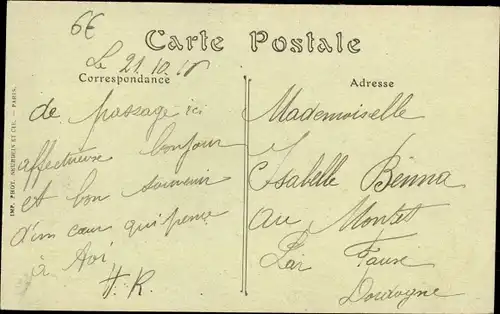 6€
Carte Postale
Le 21.10.18
Correspondance
de passage ici
affectueux bonjour
et bon souvenir
d'un cœur qui pense
à toi
H. R.
Adresse
Mademoiselle
Isabelle Benna
au Montet
Par Faure
Dordogne
IMP. PHOT. NEURDEIN ET CIE. — PARIS.